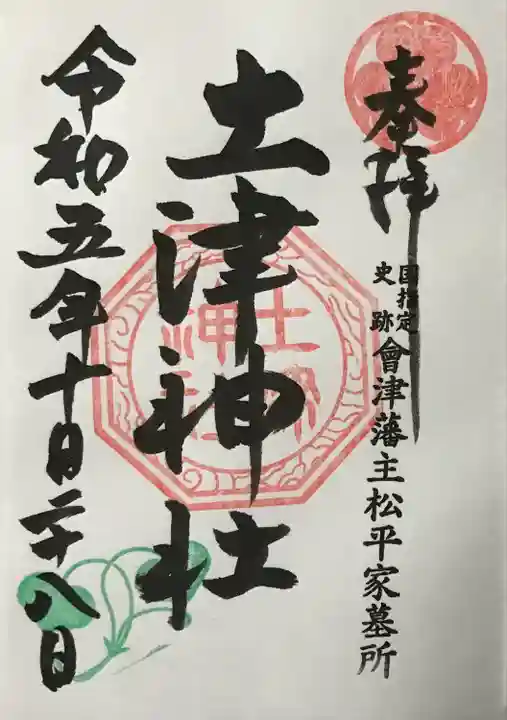 奉拝
国指定
史跡
會津藩主松平家墓所
土津神社
令和五年十月二十八日
土津
神社